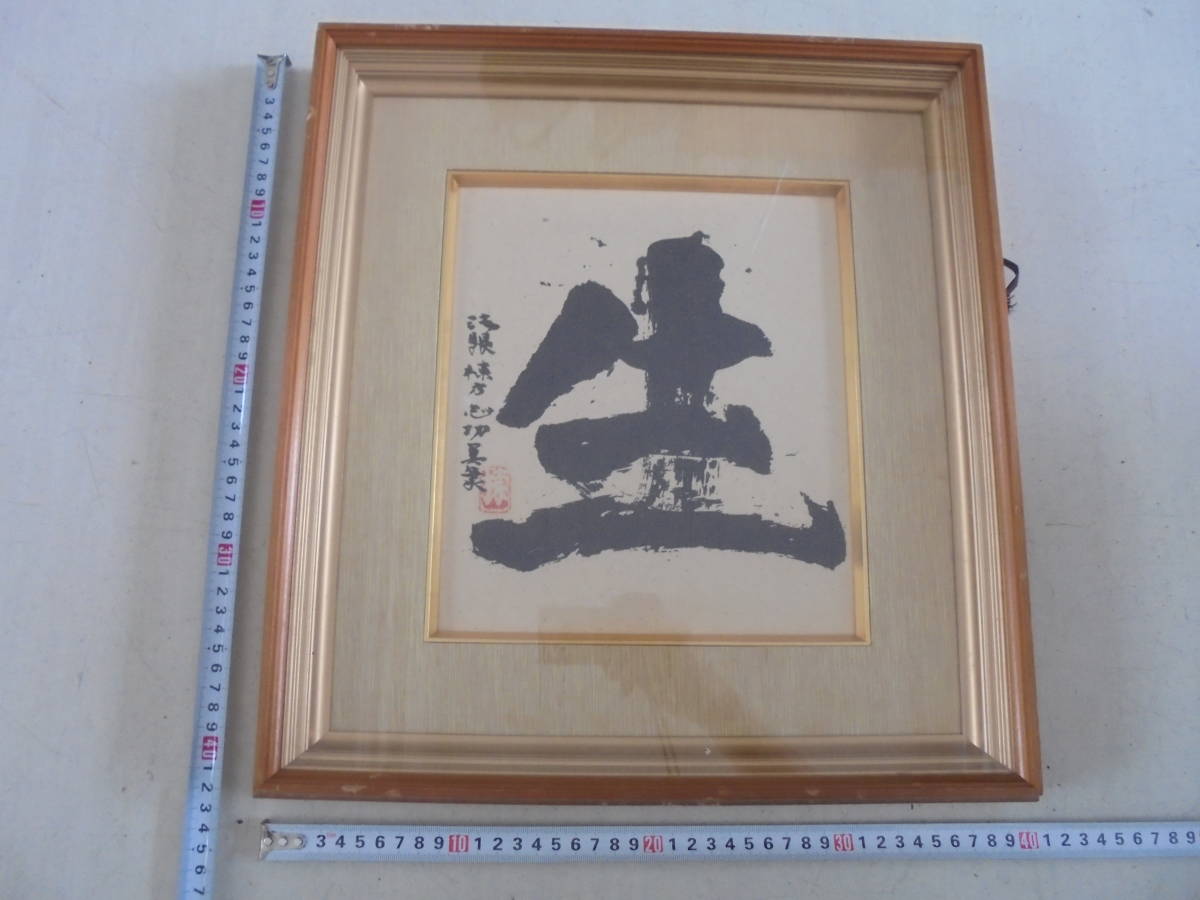 生
法眼 棟方志功
3 4 5 6 7 8 9 10 1 2 3 4 5 6 7 8 9 20 1 2 3 4 5 6 7 8 9 30 1 2 3 4 5 6 7 8 9 40 1 2 3 4 5 6 7
3 4 5 6 7 8 9 10 1 2 3 4 5 6 7 8 9 20 1 2 3 4 5 6 7 8 9 30 1 2 3 4 5 6 7 8 9 40 1 2 3 4 5 6 7 8 9